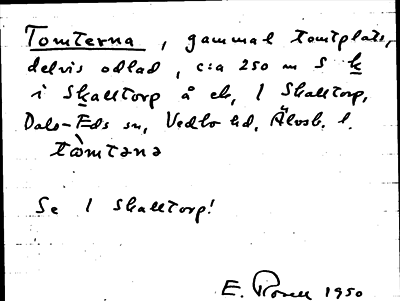 Tomterna, gammal tomtplats,
delvis odlad, c:a 250 m S k
i Skalltorp å ek, 1 Skalltorp,
Dals-Eds sn, Vedbo hd, Älvsb. l.
tòmtəna
Se 1 Skalltorp!
E. Rosell 1950